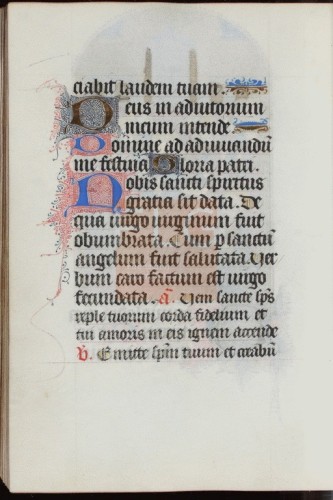 ciabit laudem tuam.
Deus in adiutorium
meum intende
Domine ad adiuuandū
me festina Gloria patri.
Nobis sancti spiritus
gratia sit data. De
qua uirgo uirginum fuit
obumbrata. Cum p sanctū
angelum fuit salutata. Uer
bum caro factum est uirgo
fecundata. a. Ueni sancte sp̄s
reple tuorum corda fidelium et
tui amoris in eis ignem accende
V. Emitte sp̄m tuum et creabūt